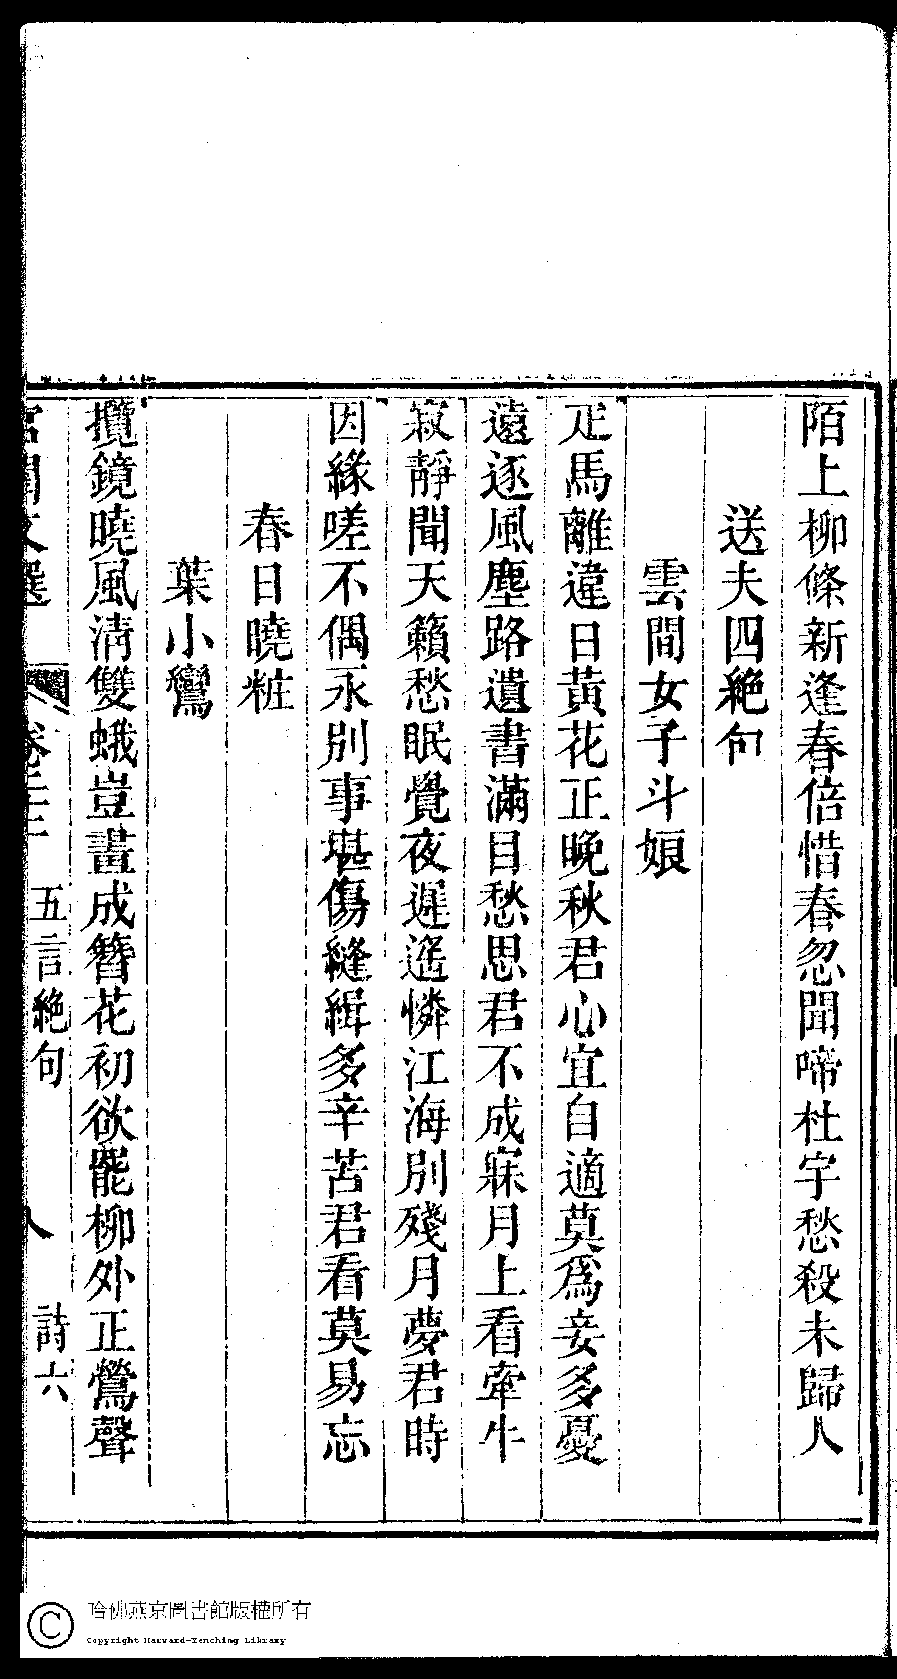 陌上柳條新逢春倍惜春忽聞啼杜宇愁殺未歸人
送夫四絶句
雲間女子斗娘
疋馬離違日黃花正晚秋君心宜自適莫爲妾多憂
遠逐風塵路遺書滿目愁思君不成寐月上看牽牛
寂靜聞天籟愁眠覺夜遲遙憐江海別殘月夢君時
因緣嗟不偶永別事堪傷縫緝多辛苦君看莫易忘
春日曉粧
葉小鸞
攬鏡曉風清雙蛾豈畫成簪花初欲罷柳外正鶯聲
宮閨文選 卷二十 五言絶句 八 詩六
哈佛燕京圖書館版權所有
Copyright Harvard-Yenching Library